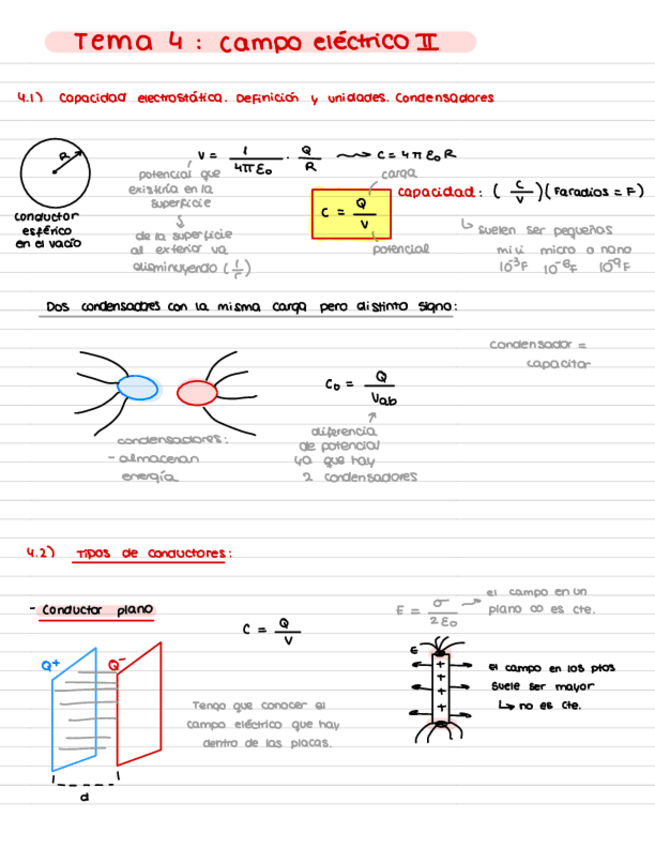 Tema 4 : campo eléctrico II
4.1) Capacidad electrostática. Definición y unidades. Condensadores
R
conductor
esférico
en el vacío
V = 1/4πε₀ · Q/R ⇝ C = 4πε₀R
potencial que
existiría en la
superficie
↓
de la superficie
al exterior va
disminuyendo (1/r)
carga
C = Q/V
potencial
capacidad: (C/V)(Faradios = F)
↳ suelen ser pequeños
mili micro o nano
10⁻³F 10⁻⁶F 10⁻⁹F
Dos condensadores con la misma carga pero distinto signo:
condensador =
capacitor
condensadores:
- almacenan
energía
C₀ = Q/Vab
diferencia
de potencial
ya que hay
2 condensadores
4.2) Tipos de conductores:
- Conductor plano
Q+ Q-
d
C = Q/V
Tengo que conocer el
campo eléctrico que hay
dentro de las placas.
E = σ/2ε₀ → el campo en un
plano ∞ es cte.
E
+
+
+
+
el campo en los ptos
suele ser mayor
↳ no es cte.